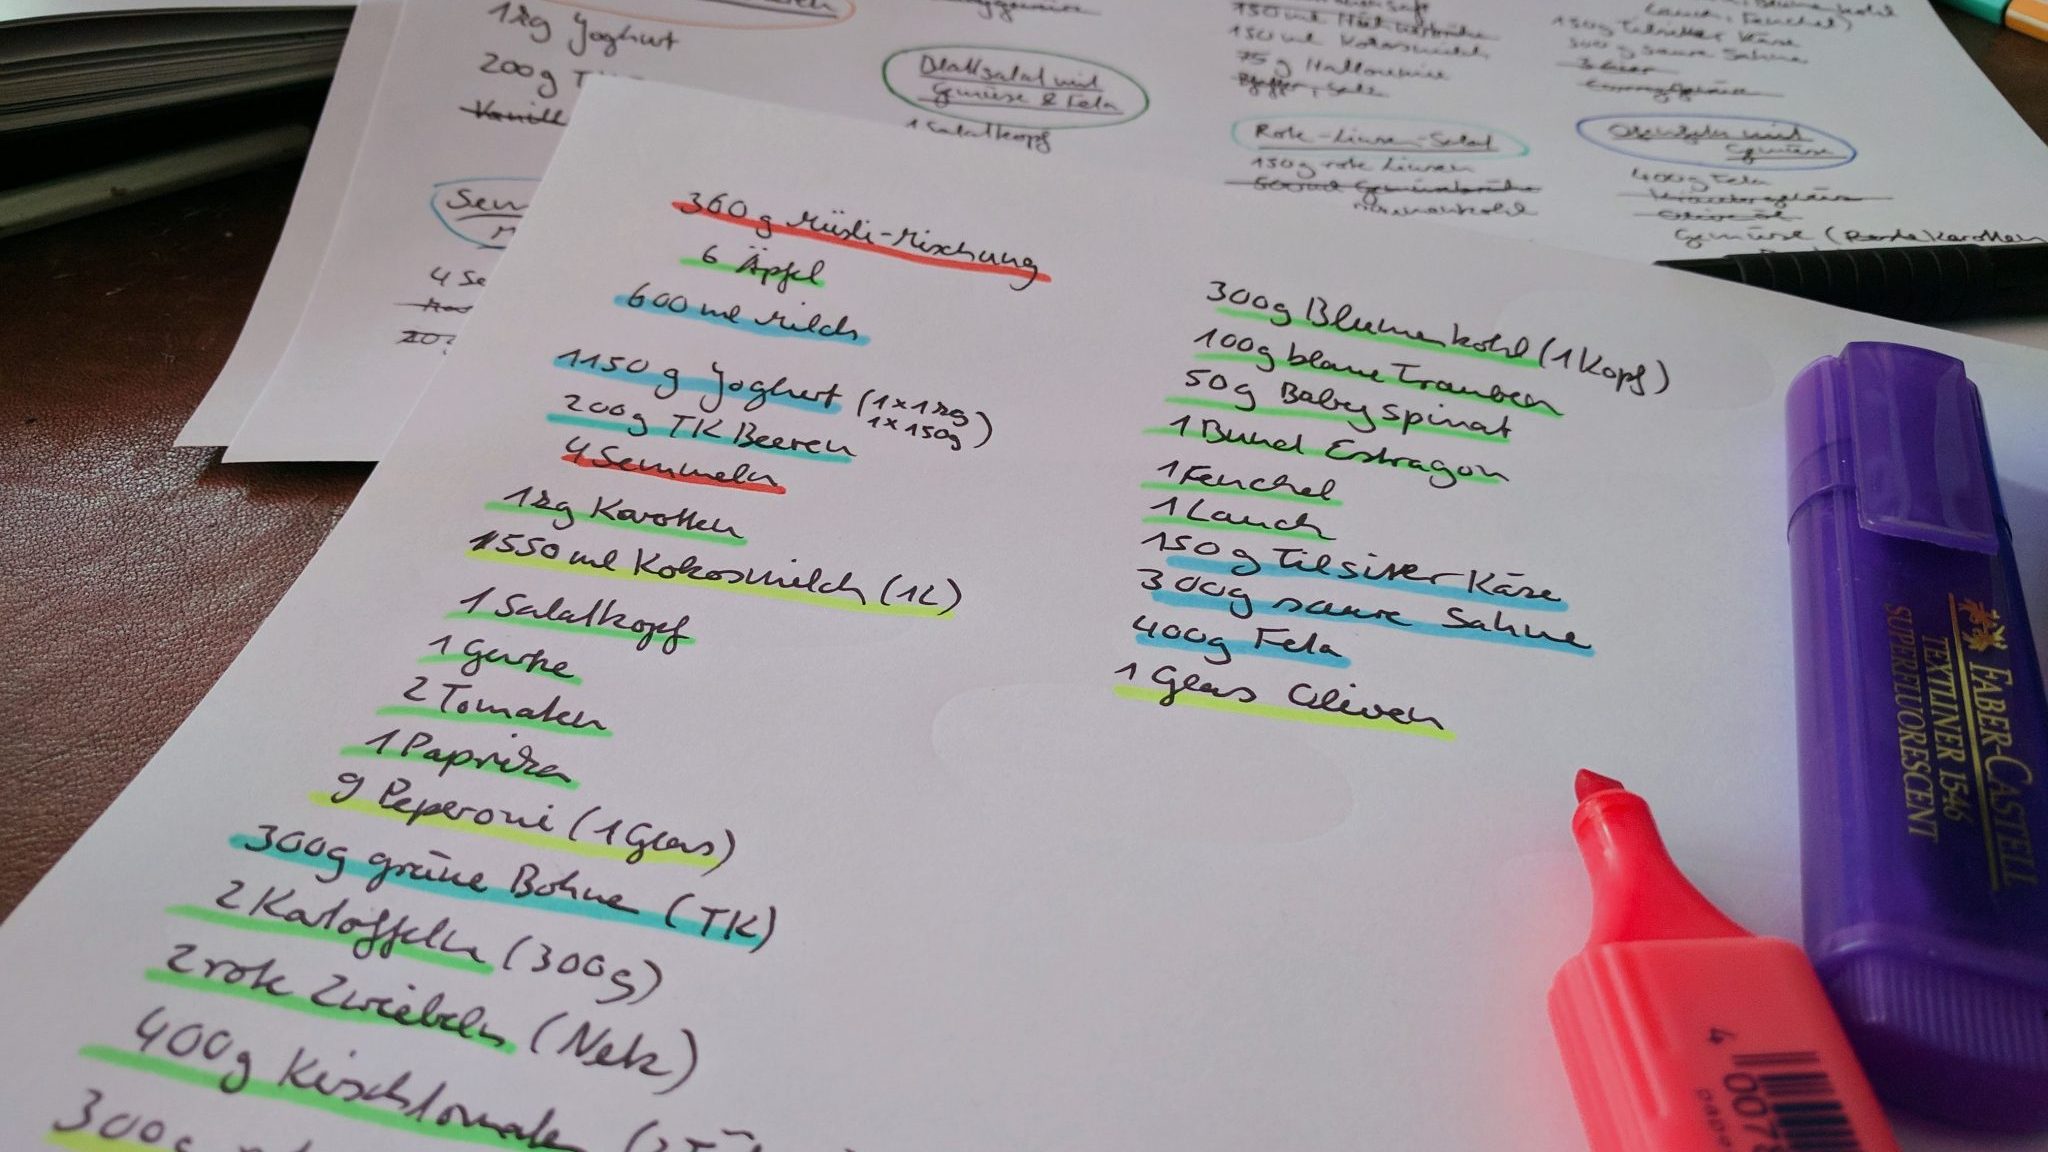 1kg Joghurt
200g
Vanill
4 Se
Blattsalat mit
Gemüse & Feta
1 Salatkopf
150 ml Kokosmilch
75 g Halloumi
Pfeffer, Salz
Rote-Linsen-Salat
150g rote Linsen
500ml Gemüsebrühe
Lauch, Fenchel)
150g Tilsiter Käse
300g saure Sahne
3 Eier
Gemüse
400g Feta
Olivenöl
Gemüse (Karotten
360 g Müsli-Mischung
6 Äpfel
600 ml Milch
1150 g Joghurt (1x1kg
1x150g)
200g TK Beeren
4 Semmeln
1kg Karotten
1550 ml Kokosmilch (1L)
1 Salatkopf
1 Gurke
2 Tomaten
1 Paprika
9 Peperoni (1 Glas)
300g grüne Bohne (TK)
2 Kartoffeln (300g)
2 rote Zwiebeln (Netz)
400g Kirschtomaten
300g
300g Blumenkohl (1 Kopf)
100g blaue Trauben
50g Babyspinat
1 Bund Estragon
1 Fenchel
1 Lauch
150 g Tilsiter Käse
300g saure Sahne
400g Feta
1 Glas Oliven
FABER-CASTELL
TEXTLINER 1546
SUPERFLUORESCENT
4